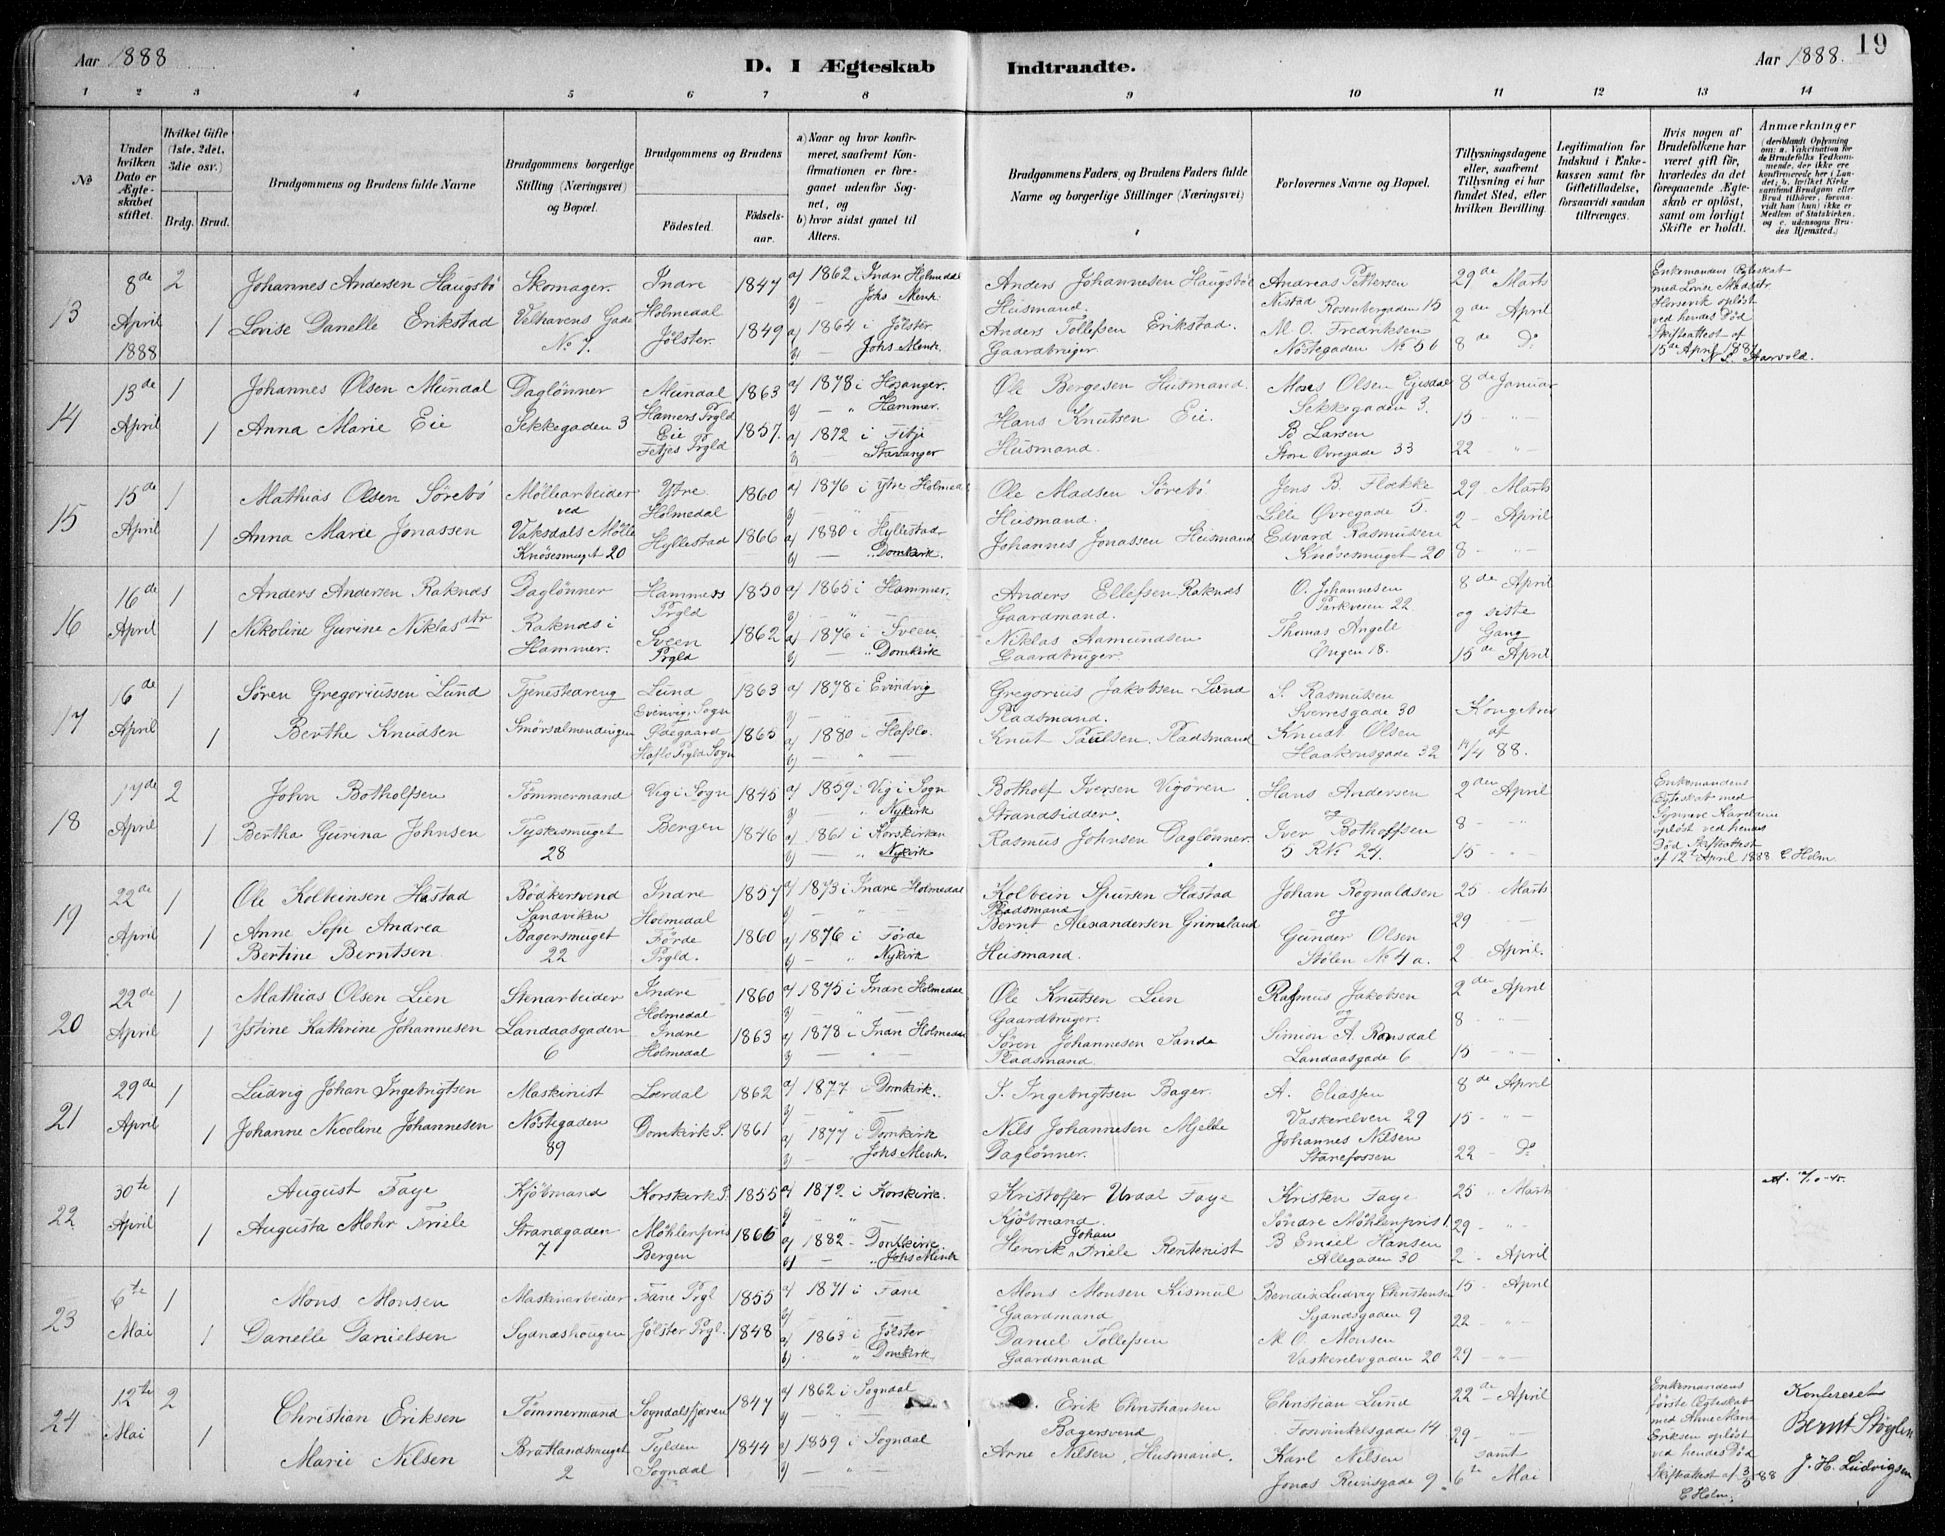 Aar 1888
D. I Ægteskab Indtraadte.
Aar 1888.
19
1 2 3 4 5 6 7 8 9 10 11 12 13 14
No
Under hvilken Dato er Ægteskabet stiftet.
Hvilket Gifte (1ste, 2det, 3die osv.)
Brdg. Brud.
Brudgommens og Brudens fulde Navne
Brudgommens borgerlige Stilling (Næringsvei) og Bopæl.
Brudgommens og Brudens
Fødested. Fødselsaar.
a) Naar og hvor konfirmeret, saafremt Konfirmationen er foregaaet udenfor Sognet, og
b) hvor sidst gaaet til Alters.
Brudgommens Faders og Brudens Faders fulde Navne og borgerlige Stillinger (Næringsvei)
Forlovernes Navne og Bopæl.
Tillysningsdagene eller, saafremt Tillysning ei har fundet Sted, efter hvilken Bevilling.
Legitimation for Indskud i Enkekassen samt for Giftetilladelse, forsaavidt saadan tiltrænges.
Hvis nogen af Brudefolkene har været gift før, hvorledes da det foregaaende Ægteskab er opløst, samt om lovligt Skifte er holdt.
Anmærkninger
(deriblandt Oplysning om: a. Vakcination for de Brudefolks Vedkommende, der ikke ere konfirmerede her i Landet; b. hvilket Kirkesamfund Brudgom eller Brud tilhører, forsaavidt han (hun) ikke er Medlem af Statskirken, og c. udensogns Brudes Hjemsted.)
13
8de April 1888
2
Johannes Andersen Haugsbø
Skomager.
Indre Holmedal
1847
a) 1862 i Indre Holmedal
b) — Johs Menh.
Anders Johannesen Haugsbø
Husmand.
Andreas Pettersen Nistad
Rosenbergaden 15
29de Marts
1
Lovise Danelle Erikstad
Velhavens Gade No 7.
Jølster.
1849
a) 1864 i Jølster.
b) — Johs Menh.
Anders Tollefsen Erikstad.
Gaardbruger.
M. O. Fredriksen
Nøstegaden No 56
2de April
8de Do
Enkemandens Egteskab
med Lovise Madsdtr
opløst
ved hendes Død
Skifteattest af
15de April 1887
14
13de April
1
Johannes Olsen Mundal
Daglønner
Mundal Hamers Prgld
1863
a) 1878 i Hosanger.
b) — " Hammer.
Ole Bergesen Husmand.
Mons Olsen Gjesdal
Sekkegaden 3.
8de Januar
1
Anna Marie Eie
Sekkegaden 3
Eie Fetjes Prgld
1857.
a) 1872 i Fitje
b) — Stavanger
Hans Knutsen Eie.
Husmand.
B Larsen
Store Øvregade 33
15 — " —
22 "
15
15de April
1
Mathias Olsen Sørebø
Møllearbeider ved
Ytre Holmedal
1860
a) 1876 i ytre Holmedal
b) — " —
Ole Madsen Sørebø
Husmand.
Jens B. Flokke
Lille Øvregade 5.
29 - Marts
1
Anna Marie Jonassen
Vaksdals Mølle
Knøsesmuget 20
Hyllestad
1866
a) 1880 i Hyllestad
b) — " Domkirk.
Johannes Jonassen Husmand
Edvard Rasmussen
Knøsesmuget 20
2 - April
8 - " -
16
16de April
1
Anders Andersen Raknes
Daglønner
Hammers Prgld
1850
a) 1865 i Hammer.
b) — " —
Anders Ellefsen Raknes
Gaardmand.
O. Johannesen
Parkveien 22.
8de April
og siste Gang
1
Nikoline Gurine Niklasdtr
Raknes i Hammer.
Sveen Prgld
1862
a) 1876 i Sveen.
b) — " Domkirk
Niklas Aamundsen
Gaardbruger.
Thomas Angell
Engen 18.
15de April
17
16de April
1
Søren Gregoriussen Lund
Tjenestedreng
Lund Evenvig, Sogn
1863
a) 1878 i Evindvig
b) — " —
Gregorius Jakobsen Lund
Pladsmand.
S. Rasmussen
Sverresgade 30
1
Berthe Knudsen
Smørsalmendingen
Ødegaard Hafslo Prgld Sogn
1865
a) 1880 i Hafslo.
b) — " —
Knut Paulsen Pladsmand
Knudt Olsen
Haakonsgade 32
Kongebrev af
14/4 88.
18
17de April
2
John Botholfsen
Tømmermand
Vig i Sogn
1845
a) 1859 i Vig i Sogn
b) — " Nykirk
Botholf Iversen Vigøren
Strandsidder.
Hans Andersen
og
2den April
1
Bertha Gurina Johnsen
Tyskesmuget 28
Bergen
1846
a) 1861 i Korskirken
b) — " Nykirk
Rasmus Johnsen Daglønner.
Iver Bothoffsen
5 R No 24.
8 - " -
15 - " -
Enkemandens
Egteskab med
Synneve
opløst ved hendes
Død Skifteattest
af 12te April 1888 C. Holm.
19
22de April
1
Ole Kolbeinsen Hæstad
Bødkersvend Sandviken
Indre Holmedal
1857
a) 1873 i Indre Holmedal
b) — " —
Kolbein Spursen Hæstad
Pladsmand
Johan Rognaldsen
og
25 - Marts
29 —
1
Anne Sofie Andrea
Bertine Berntsen.
Bagersmuget 22
Førde Prgld.
1860
a) 1876 i Førde
b) — " Nykirk
Bernt Alexandersen Grimeland
Husmand.
Gunder Olsen
Stølen No 4 a.
2 - April.
20
22de April
1
Mathias Olsen Lien
Stenarbeider
Indre Holmedal
1860
a) 1875 i Indre Holmedal
b) — " —
Ole Knutsen Lien
Gaardbruger.
Rasmus Jakobsen
og
2den April
1
Ystine Kathrine Johannesen
Landaasgaden 6
Indre Holmedal
1863
a) 1878 i Indre Holmedal
b) — " —
Søren Johannesen Sande
Pladsmand.
Simion A. Ramsdal
Landaasgade 6
8 - " -
15 - " -
21
29de April
1
Ludvig Johan Ingebrigtsen
Maskinist
Lærdal
1862
a) 1877 i Domkirk.
b) — " —
S. Ingebrigtsen Bager.
A. Eliassen
Vaskerelven 29
8de April
1
Johanne Nicoline Johannesen
Nøstegaden 89
Domkirk S.
1861
a) 1877 i Domkirk
b) — " Johs Menh.
Nils Johannesen Mjelde
Daglønner.
Johannes Nilsen
Starefossen
15 - " -
22 - Do
22
30te April
1
August Faye
Kjøbmand
Korskirk S.
1855
a) 1872 i Korskirke.
b) — " —
Kristoffer Urdal Faye
Kjøbmand.
Kristen Faye
Søndre Møhlenpris 1.
25 " Marts
1
Augusta Mohr Friele
Strandgaden 7.
Møhlenpris Bergen
1866
a) 1882 - Domkirke
b) — " Johs Menh
Henrik Johan Friele Rentenist
B Emiel Hansen
Allegaden 30
29 - " -
2 - April
23
6te Mai
1
Mons Monsen
Maskinarbeider
Fane Prgl
1855
a) 1871 i Fane
b) — " —
Mons Monsen Kismul
Gaardmand
Bendix Ludvig Christensen
Sydnesgaden 9
15 - April
1
Danelle Danielsen
Sydneshougen
Jølster Prgl.
1848
a) 1863 i Jølster
b) " Domkirk
Daniel Tollefsen
Gaardmand
M. O. Monsen
Vaskerelvgaden 20
22 - " -
29 - " -
24
12te Mai
2
Christian Eriksen
Tømmermand
Sogndalsfjøren
1847
a) 1862 i Sogndal
b) — " —
Erik Christiansen
Bagersvend
Christian Lund
Fosvinkelsgade 14
22de April
1
Marie Nilsen
Bratlandsmuget 2
Fylden Sogndal
1844
a) 1859 i Sogndal
b) — " —
Arne Nilsen, Husmand.
Karl Nilsen
Jonas Reinsgade 9.
29 - " -
samt
6te Mai
Enkemandens
første Ægteskab
med Anne Marie
Eriksen opløst
ved hendes Død
Skifteattest af 3/5 88
C Holm.
Konfereret
Bernt Støylen
J. H. Ludvigsen